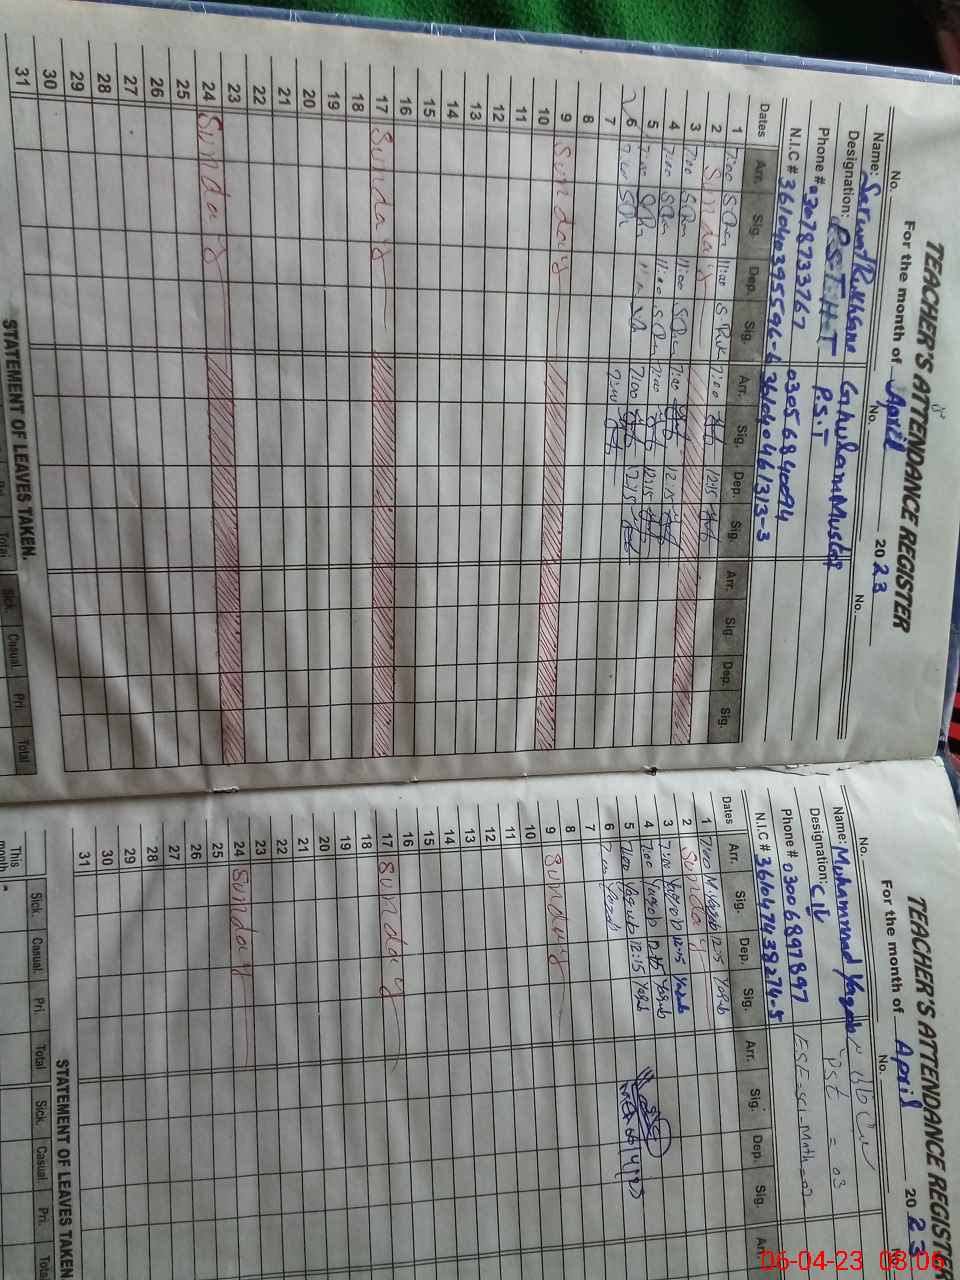 TEACHER'S ATTENDANCE REGISTER
For the month of April 2023
No. No. No.
Name: Ghulam
Designation: P.S.T H.T P.S.T
Phone # 03078733767 03056840094
N.I.C #
Dates Arr. Sig. Dep. Sig. Arr. Sig. Dep. Sig. Arr. Sig. Dep. Sig.
1 7:00 11:00 7:00 12:15
2 Sunday
3 7:00 11:00 7:00 12:15
4 7:00 11:00 7:00 12:15
5 7:00 7:00 12:15
6 7:00 7:00
7
8
9 Sunday
10
11
12
13
14
15
16
17 Sunday
18
19
20
21
22
23
24 Sunday
25
26
27
28
29
30
31
STATEMENT OF LEAVES TAKEN.
Total Sick. Casual. Pri. Total
TEACHER'S ATTENDANCE REGISTER
For the month of April 2023
No. No.
Name: Muhammad Yaqoob
Designation: C IV PST = 03
Phone # 03006897897 ESE = Sci-Math = 02
N.I.C # 361047438274-5
Dates Arr. Sig. Dep. Sig. Arr. Sig. Dep. Sig. Arr.
1 7:00 M.Yaqoob 12:15 Yaqub
2 Sunday
3 7:00 Yaqoob 12:15 Yaqub
4 7:00 Yaqoob 12:15 Yaqub
5 7:00 Yaqub 12:15 Yaqub
6 7:00 Yaqub
7
8
9 Sunday
10
11
12
13
14
15
16
17 Sunday
18
19
20
21
22
23
24 Sunday
25
26
27
28
29
30
31
STATEMENT OF LEAVES TAKEN
This month Sick. Casual. Pri. Total Sick. Casual. Pri. Total
06-04-23 08:06